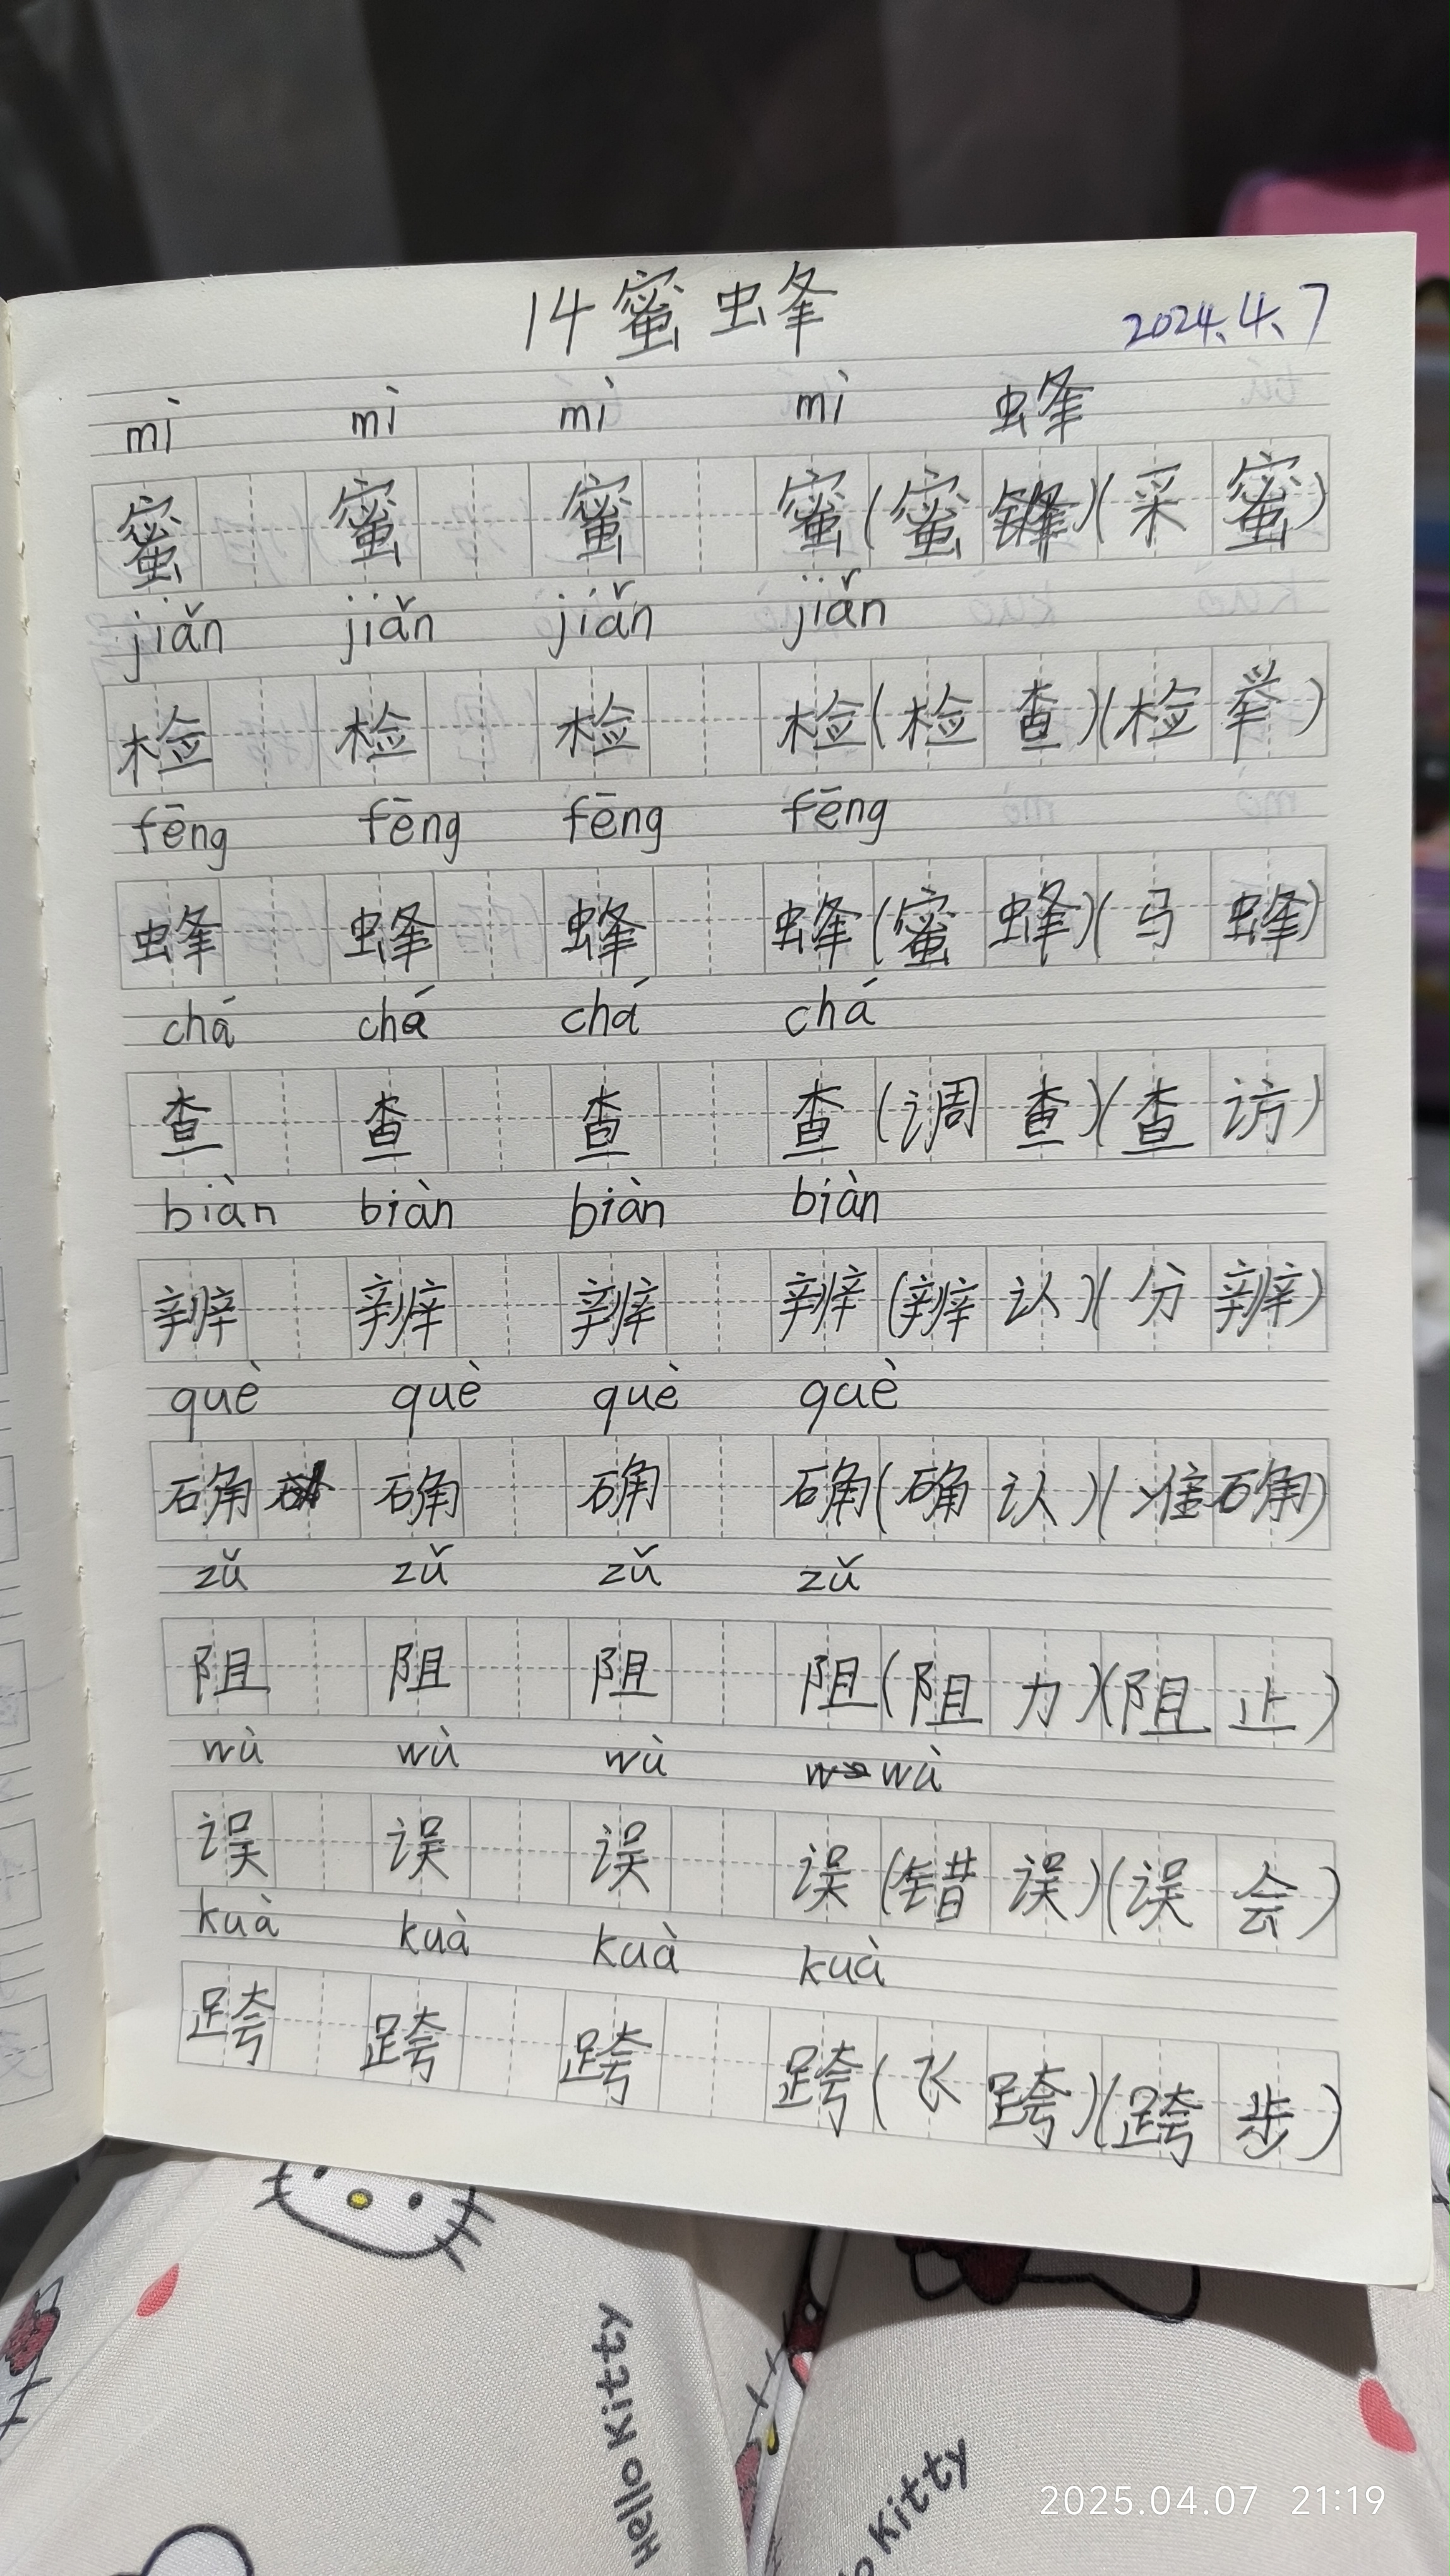 14 蜜蜂 2024.4.7
mì mì mì mì 蜂
蜜 蜜 蜜 蜜(蜜)(采蜜)
jiǎn jiǎn jiǎn jiǎn
检 检 检 检(检查)(检举)
fēng fēng fēng fēng
蜂 蜂 蜂 蜂(蜜蜂)(马蜂)
chá chá chá chá
查 查 查 查(调查)(查访)
biàn biàn biàn biàn
辨 辨 辨 辨(辨认)(分辨)
què què què què
确 确 确 确(确认)(准确)
zǔ zǔ zǔ zǔ
阻 阻 阻 阻(阻力)(阻止)
wù wù wù wù
误 误 误 误(错误)(误会)
kuà kuà kuà kuà
跨 跨 跨 跨(飞跨)(跨步)
Hello Kitty
Kitty
2025.04.07 21:19